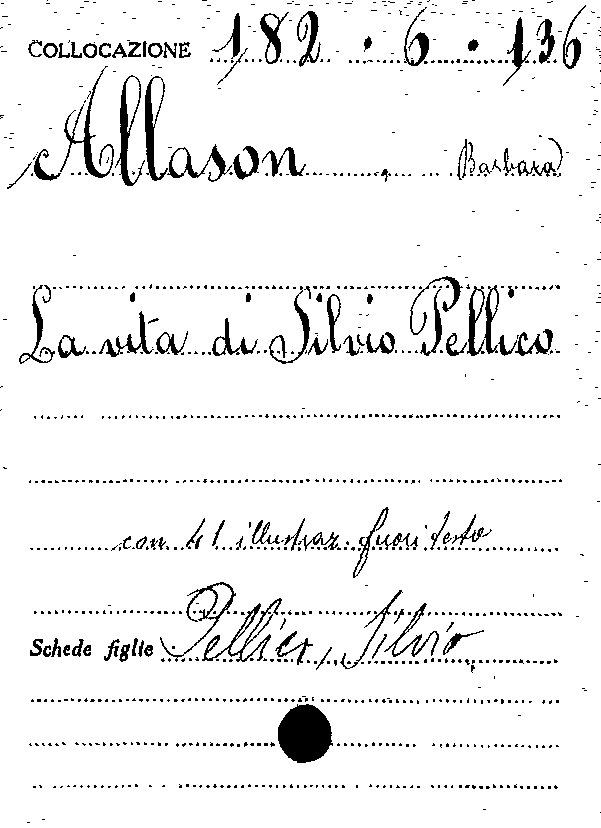 COLLOCAZIONE 182.6.136
Allason, Barbara
La vita di Silvio Pellico
con 41 illustraz. fuori testo
Schede figlie Pellico, Silvio